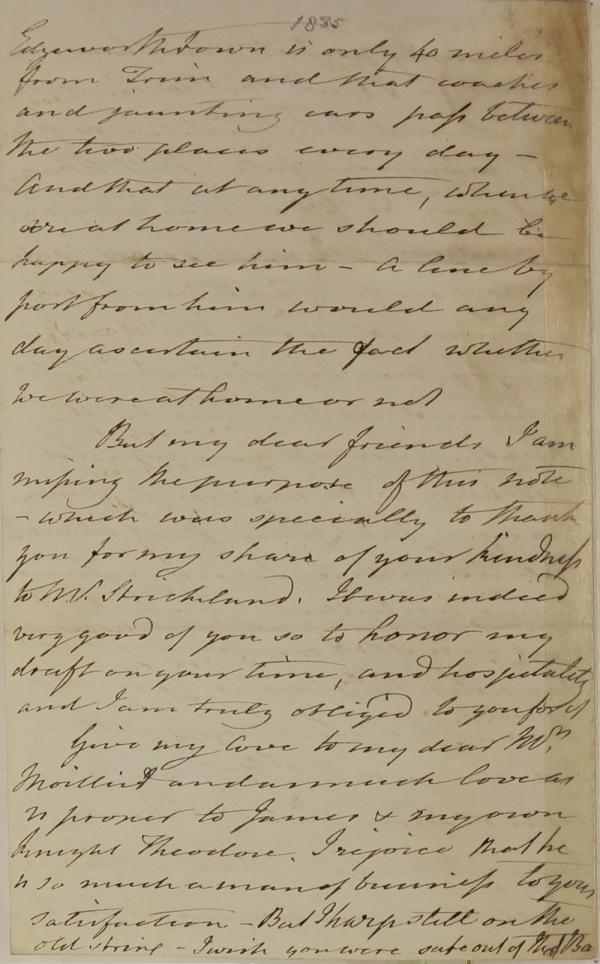 1835
Edgeworthstown is only 40 miles
from Trim and that coaches
and jaunting cars pass between
the two places every day –
And that at any time, when we
are at home we should be
happy to see him – A line by
post from him would any
day ascertain the fact whether
we were at home or not
But my dear friends I am
missing the purpose of this note
– which was specially to thank
you for my share of your kindness
to Mr. Strickland. It was indeed
very good of you so to honor my
draft on your time, and hospitality
and I am truly obliged to you for it
Give my love to my dear Mrs.
Moilliet and as much love as
is proper to James & my own
knight Theodore. I rejoice that he
is so much a man of business to your
satisfaction – But I harp still on the
old string – I wish you were safe out of the Ba